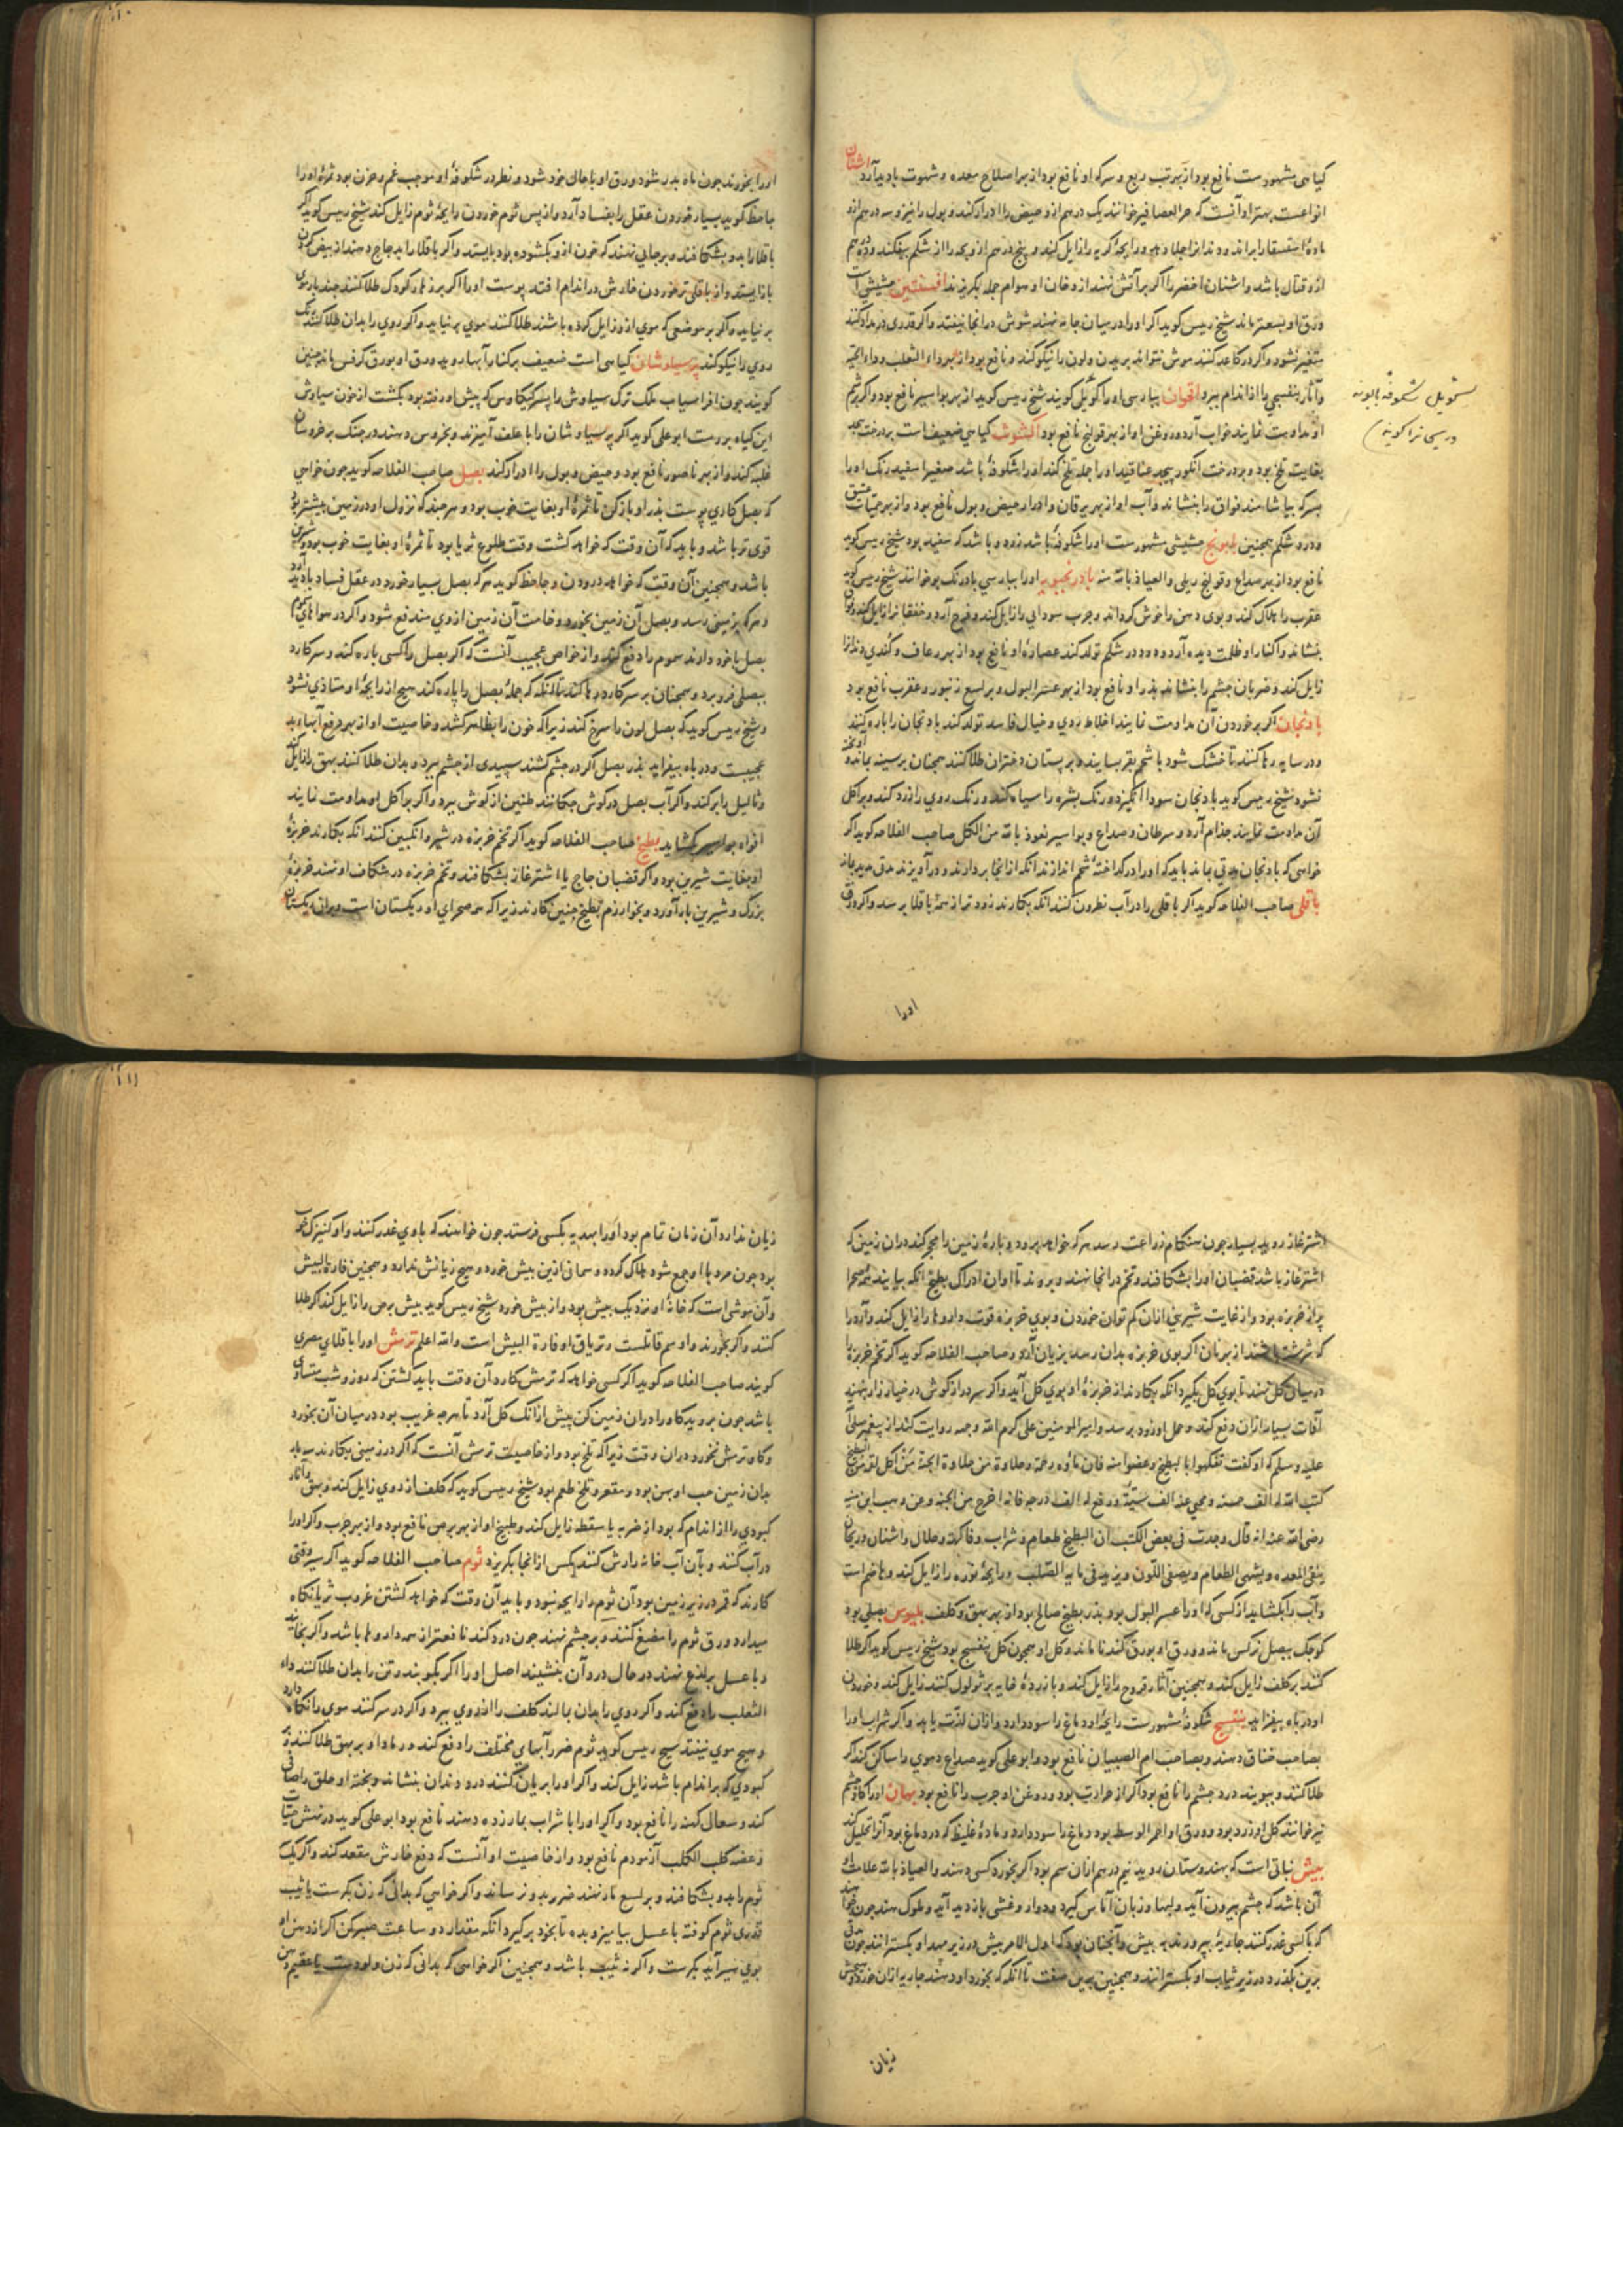 گیاهی مشهورست نافع بود از بهر تب ربع و سرکه او نافع بود از بهر اصلاح معده و شهوت بادید آرد اشنان
انواعست بهتر او آنست که خرء العصافیر خوانند یک درهم ازو حیض را ادرار کند و بول را نیز و سه درهم ازو
ماده استسقا را براند و دندانرا جلا دهد و رایحه کریه را زایل کند و پنج درهم ازو بچه را از شکم بیفکند و ده درهم
ازو قتال باشد و اشنان اخضر را اگر بر آتش نهند از دخان او هوام جمله بگریزند افسنتین حشیشی است
ورق او بسعتر ماند شیخ رییس گوید اگر او را در میان جامه نهند شوش در انجا نیفتد و اگر قدری در مداد کنند
متغیر نشود و اگر در کاغد کنند موش نتواند بریدن و لون را نیکو کند و نافع بود از بهر داء الثعلب و داء الحیه
و آثار بنفسجی را از اندام ببرد اقحوان بپارسی او را کویل گویند شیخ رییس گوید از بهر بواسیر نافع بود و اگر بشم
او مداومت نمایند خواب آرد و روغن او از بهر قولنج نافع بود اکشوث گیاهی ضعیف است بر درخت پیچد
بغایت تلخ بود و بر درخت انگور پیچد عناقید او را جمله تلخ کند او را شکوفهٔ باشد صغیر اسفید رنگ او را
بسرکه بیاشامند فواق را بنشاند و آب او از بهر یرقان و ادرار حیض و بول نافع بود و از بهر حمیات عتیق
و درد شکم همچنین بابونج حشیشی مشهورست او را شکوفهٔ باشد زرد و باشد که سفید بود شیخ رییس گوید
نافع بود از بهر صداع و قولنج ریلی و العیاذ بالله منه بادرنجبویه او را بپارسی بادرنک بو خوانند شیخ رییس گوید
عقرب را هلاک کند و بوی دهن را خوش گرداند و جرب سودایی را زایل کند و فرح آرد و خفقانرا زایل کند
بنشاند و اکثار او ظلمت دیده آرد و دود در شکم تولد کند عصاره او نافع بود از بهر رعاف و کندی دندانرا
زایل کند و ضربان چشم را بنشاند بذر او نافع بود از بهر عسر البول و بر لسع زنبور و عقرب نافع بود
بادنجان اگر بر خوردن آن مداومت نمایند اخلاط ردی و خیال فاسد تولد کند بادنجان را پاره کنند
و در سایه رها کنند تا خشک شود با شحم بقر بسایند و بر پستان دختران طلا کنند همچنان بر سینه بماند و آویخته
نشود شیخ رییس گوید بادنجان سودا انگیزد و رنگ بشره را سیاه کند و رنگ روی را زرد کند و بر اکل
آن مداومت نمایند جذام آرد و سرطان و صداع و بواسیر نعوذ بالله من الکل صاحب الفلاحه گوید اگر
خواهی که بادنجان مدتی بماند باید که او را در گداختهٔ شحم اندازند آنکه از انجا بردارند و در آویزند مدتی مدید بماند
باقلی صاحب الفلاحه گوید اگر باقلی را در آب نطرون کنند انکه بکارند زود تر از همهٔ باقلا برسد و اگر ورق
اورا
کویل شکوفهٔ بابونه
او را بخورند چون ماه بدر شود ورق او با حال خود شود و نظر در شکوفهٔ او موجب غم و حزن بود ثمرهٔ او را
جاحظ گوید بسیار خوردن عقل را بفساد آرد و از پس ثوم خوردن رایحهٔ ثوم زایل کند شیخ رییس گوید اگر
باقلا را بدو بشکافند و بر جایی نهند که خون ازو بگشوده بود بایستد و اگر باقلا را بدجاج دهند از بیض کردن
باز ایستد و از باقلی تر خوردن خارش در اندام افتد پوست او را اگر بر زهار کودک طلا کنند چند بار موی
بر نیاید و اگر بر موضعی که موی ازو زایل کرده باشند طلا کنند موی بر نیاید و اگر روی را بدان طلا کنند رنگ
روی را نیکو کند پرسیاوشان گیاهی است ضعیف بر کنار آبها روید ورق او بورق کرفس ماند چنین
گویند چون افراسیاب ملک ترک سیاوش را پسر کیکاوس که پیش او رفته بود بکشت از خون سیاوش
این گیاه برست ابو علی گوید اگر پرسیاوشان را با علف آمیزند و بخروس دهند در جنگ بر خروسان
غلبه کند و از بهر ناصور نافع بود و حیض و بول را ادرار کند بصل صاحب الفلاحه گوید چون خواهی
که بصل کاری پوست بذر او باز کن تا ثمرهٔ او بغایت خوب بود و هر چند که نزول او در زمین بیشتر بود
قوی تر باشد و باید که آن وقت که خواهد کشت وقت طلوع ثریا بود تا ثمرهٔ او بغایت خوب بود و شیرین
باشد و همچنین آن وقت که خواهد درودن و جاحظ گوید هر که بصل بسیار خورد در عقل فساد بادید آرد
و هر که بزمینی رسد و بصل آن زمین بخورد وخامت آن زمین از وی مندفع شود و اگر در هوا های گرم
بصل با خود دارند سموم را دفع کند و از خواص عجیب آنست که اگر بصل را کسی پاره کند و سر کارد
ببصلی فرو برد و همچنان بر سر کارد رها کند تا آنکه که جملهٔ بصل را پاره کند هیچ از رایحهٔ او متاذی نشود
و شیخ رییس گوید که بصل لون را سرخ کند زیرا که خون را بظاهر کشد و خاصیت او از بهر دفع آبها بد
عجیبست و در باه بیفزاید بذر بصل اگر در چشم کشند سپیدی از چشم ببرد و بدان طلا کنند بهق را زایل کند
و ثالیل را بر کند و اگر آب بصل در گوش چکانند طنین از گوش ببرد و اگر بر اکل او مداومت نمایند
افواه بواسیر بگشاید بطیخ صاحب الفلاحه گوید اگر تخم خربزه در شیر و انگبین کنند انکه بکارند خربزهٔ
او بغایت شیرین بود و اگر قضبان حاج یا اشترغاز بشکافند و تخم خربزه در شکاف او نهند خربزهٔ
بزرگ و شیرین بار آورد و بخوارزم بطیخ چنین کارند زیرا که صحرای او ریگستان است و در آن ریگستان
اشترغاز روید بسیار چون هنگام زراعت رسد هر که خواهد برود و پارهٔ زمین را محجر کند در آن زمین که
اشترغاز باشد قضبان او را بشکافند و تخم در انجا نهند و بروند تا اوان ادراک بطیخ انکه بیایند همه صحرا
پر از خربزه بود و از غایت شیرینی از آن کم توان خوردن و بوی خربزه قوت داروها را زایل کند و آرد را
که سرشته باشند از بهر نان اگر بوی خربزه بدان رسد بزیان آرد و صاحب الفلاحه گوید اگر تخم خربزه را
در میان گل نهند تا بوی گل بگیرد انکه بکارند از خربزهٔ او بوی گل آید و اگر سر دراز گوش در خیار زار بنهند
آفات بسیار از آن دفع کند و حمل او زود برسد و امیر المومنین علی کرم الله وجهه روایت کند از پیغمبر صلی الله
علیه و سلم که او گفت تفکهوا بالبطیخ و عضوا منه فان ماؤه رحمة و حلاوة من حلاوة الجنة من اکل لقمة من البطیخ
کتب الله له الف حسنه و محی عنه الف سیئة و رفع له الف درجه فانه اخرج من الجنه و عن وهب ابن منبه
رضی الله عنه انه قال وجدت فی بعض الکتب ان البطیخ طعام و شراب و فاکهة و خلال و اشنان و ریحان
ینقی المعده و یشهی الطعام و یصفی اللون و یزید فی ماء الصلب و رایحهٔ نوره را زایل کند و هاضم است
و آب را بگشاید از کسی که او را عسر البول بود بذر بطیخ صالح بود از بهر بهق و کلف بلبوس بصلی بود
کوچک ببصل نرگس ماند و ورق او بورق گندنا ماند و گل او همچون گل بنفسج بود شیخ رییس گوید اگر طلا
کنند بر کلف زایل کند و همچنین آثار قروح را زایل کند و با زردهٔ خایه بر ثولول کنند زایل کند و خوردن
او در باه بیفزاید بنفسج شکوفهٔ مشهورست رایحهٔ او دماغ را سود دارد و از آن لذت یابد و اگر شراب او را
بصاحب خناق دهند و بصاحب ام الصبیان نافع بود و ابو علی گوید صداع دموی را ساکن کند اگر
طلا کنند و ببویند درد چشم را نافع بود اگر از حرارت بود و روغن او جرب را نافع بود بهار او را گاو چشم
نیز خوانند گل او زرد بود و ورق او احمر الوسط بود دماغ را سود دارد و مادهٔ غلیظ که در دماغ بود آنرا تحلیل کند
بیش نباتی است که بهندوستان روید نیم درهم از آن سم بود اگر بخورد کسی دهند و العیاذ بالله علامت او
آن باشد که چشم بیرون آید و لبها و زبان آماس گیرد و دوار و غشی بازدید آید و ملوک هند چون خواهند
که با کسی غدر کنند جاریهٔ بپرورند به بیش و آنچنان بود که اول الامر بیش در زیر مهد او بگسترانند چون مدتی
برین بگذرد در زیر ثیاب او بگسترانند و همچنین برین صفت تا آنکه که بخورد او دهند جاریه از آن خورد و هیچش
زیان
زیان ندارد آن زمان تمام بود او را بهدیه بکسی فرستد چون خواهند که با وی غدر کنند و او کنیزک خوب
بود چون مرد با او جمع شود هلاک گردد و سمانی ازین بیش خورد و هیچ زیانش ندارد و همچنین فارة البیش
و آن موشی است که خانهٔ او نزدیک بیش بود و از بیش خورد شیخ رییس گوید بیش برص را زایل کند اگر طلا
کنند و اگر بخورند و او سم قاتلست و تریاق او فارة البیش است و الله اعلم ترمس او را باقلای مصری
گویند صاحب الفلاحه گوید اگر کسی خواهد که ترمس کارد آن وقت باید کشتن که روز و شب متساوی
باشد چون بروید گاو را در آن زمین کن پیش از آنک گل آرد تا هر چه غریب بود در میان آن بخورد
و گاو ترمس نخورد در آن وقت زیرا که تلخ بود و از خاصیت ترمس آنست که اگر در زمینی بکارند
بدان زمین حب او پهن بود و مقعر و تلخ طعم بود شیخ رییس گوید که کلف از روی زایل کند و بهق و آثار
کبودی را از اندام که بود از ضربه یا سقطه زایل کند و طبیخ او از بهر برص نافع بود و از بهر جرب و اگر او را
در آب کنند و بآن آب خانه را رش کنند کیک از آنجا بگریزد ثوم صاحب الفلاحه گوید اگر سیر وقتی
کارند که قمر در زیر زمین بود آن ثوم را رایحه نبود و باید آن وقت که خواهد کشتن غروب ثریا نگاه
میدارد ورق ثوم را مضغ کنند و بر چشم نهند چون درد کند نافعتر از همه داروها باشد و اگر بخایند
و با عسل بر لذع نهند در حال درد آن بنشیند اصل او را اگر بکوبند و تن را بدان طلا کنند داء
الثعلب را دفع کند و اگر روی را بدان بمالند کلف را از روی ببرد و اگر در سر کنند موی را نگاه دارد
و هیچ موی نیفتد شیخ رییس گوید ثوم ضرر آبهای مختلف را دفع کند و رماد او بر بهق طلا کنند و بر
کبودی که بر اندام باشد زایل کند و اگر او را بریان کنند درد دندان بنشاند و پخته او حلق را صافی
کند و سعال کهنه را نافع بود و اگر او را با شراب بمار زده دهند نافع بود ابو علی گوید در نهش حیات
و عضه کلب الکلب آزمودم نافع بود و از خاصیت او آنست که دفع خارش مقعد کند و اگر یک
ثوم را بدو بشکافند و بر لسع مار نهند ضرر بدو نرساند و اگر خواهی که بدانی که زن بکرست یا ثیب
قدری ثوم کوفته با عسل بیامیز و بده تا بخود بر گیرد انکه مقدار دو ساعت صبر کن اگر از دهن او
بوی سیر آید بکرست و اگر نه ثیب باشد و همچنین اگر خواهی که بدانی که زن ولودست یا عقیم